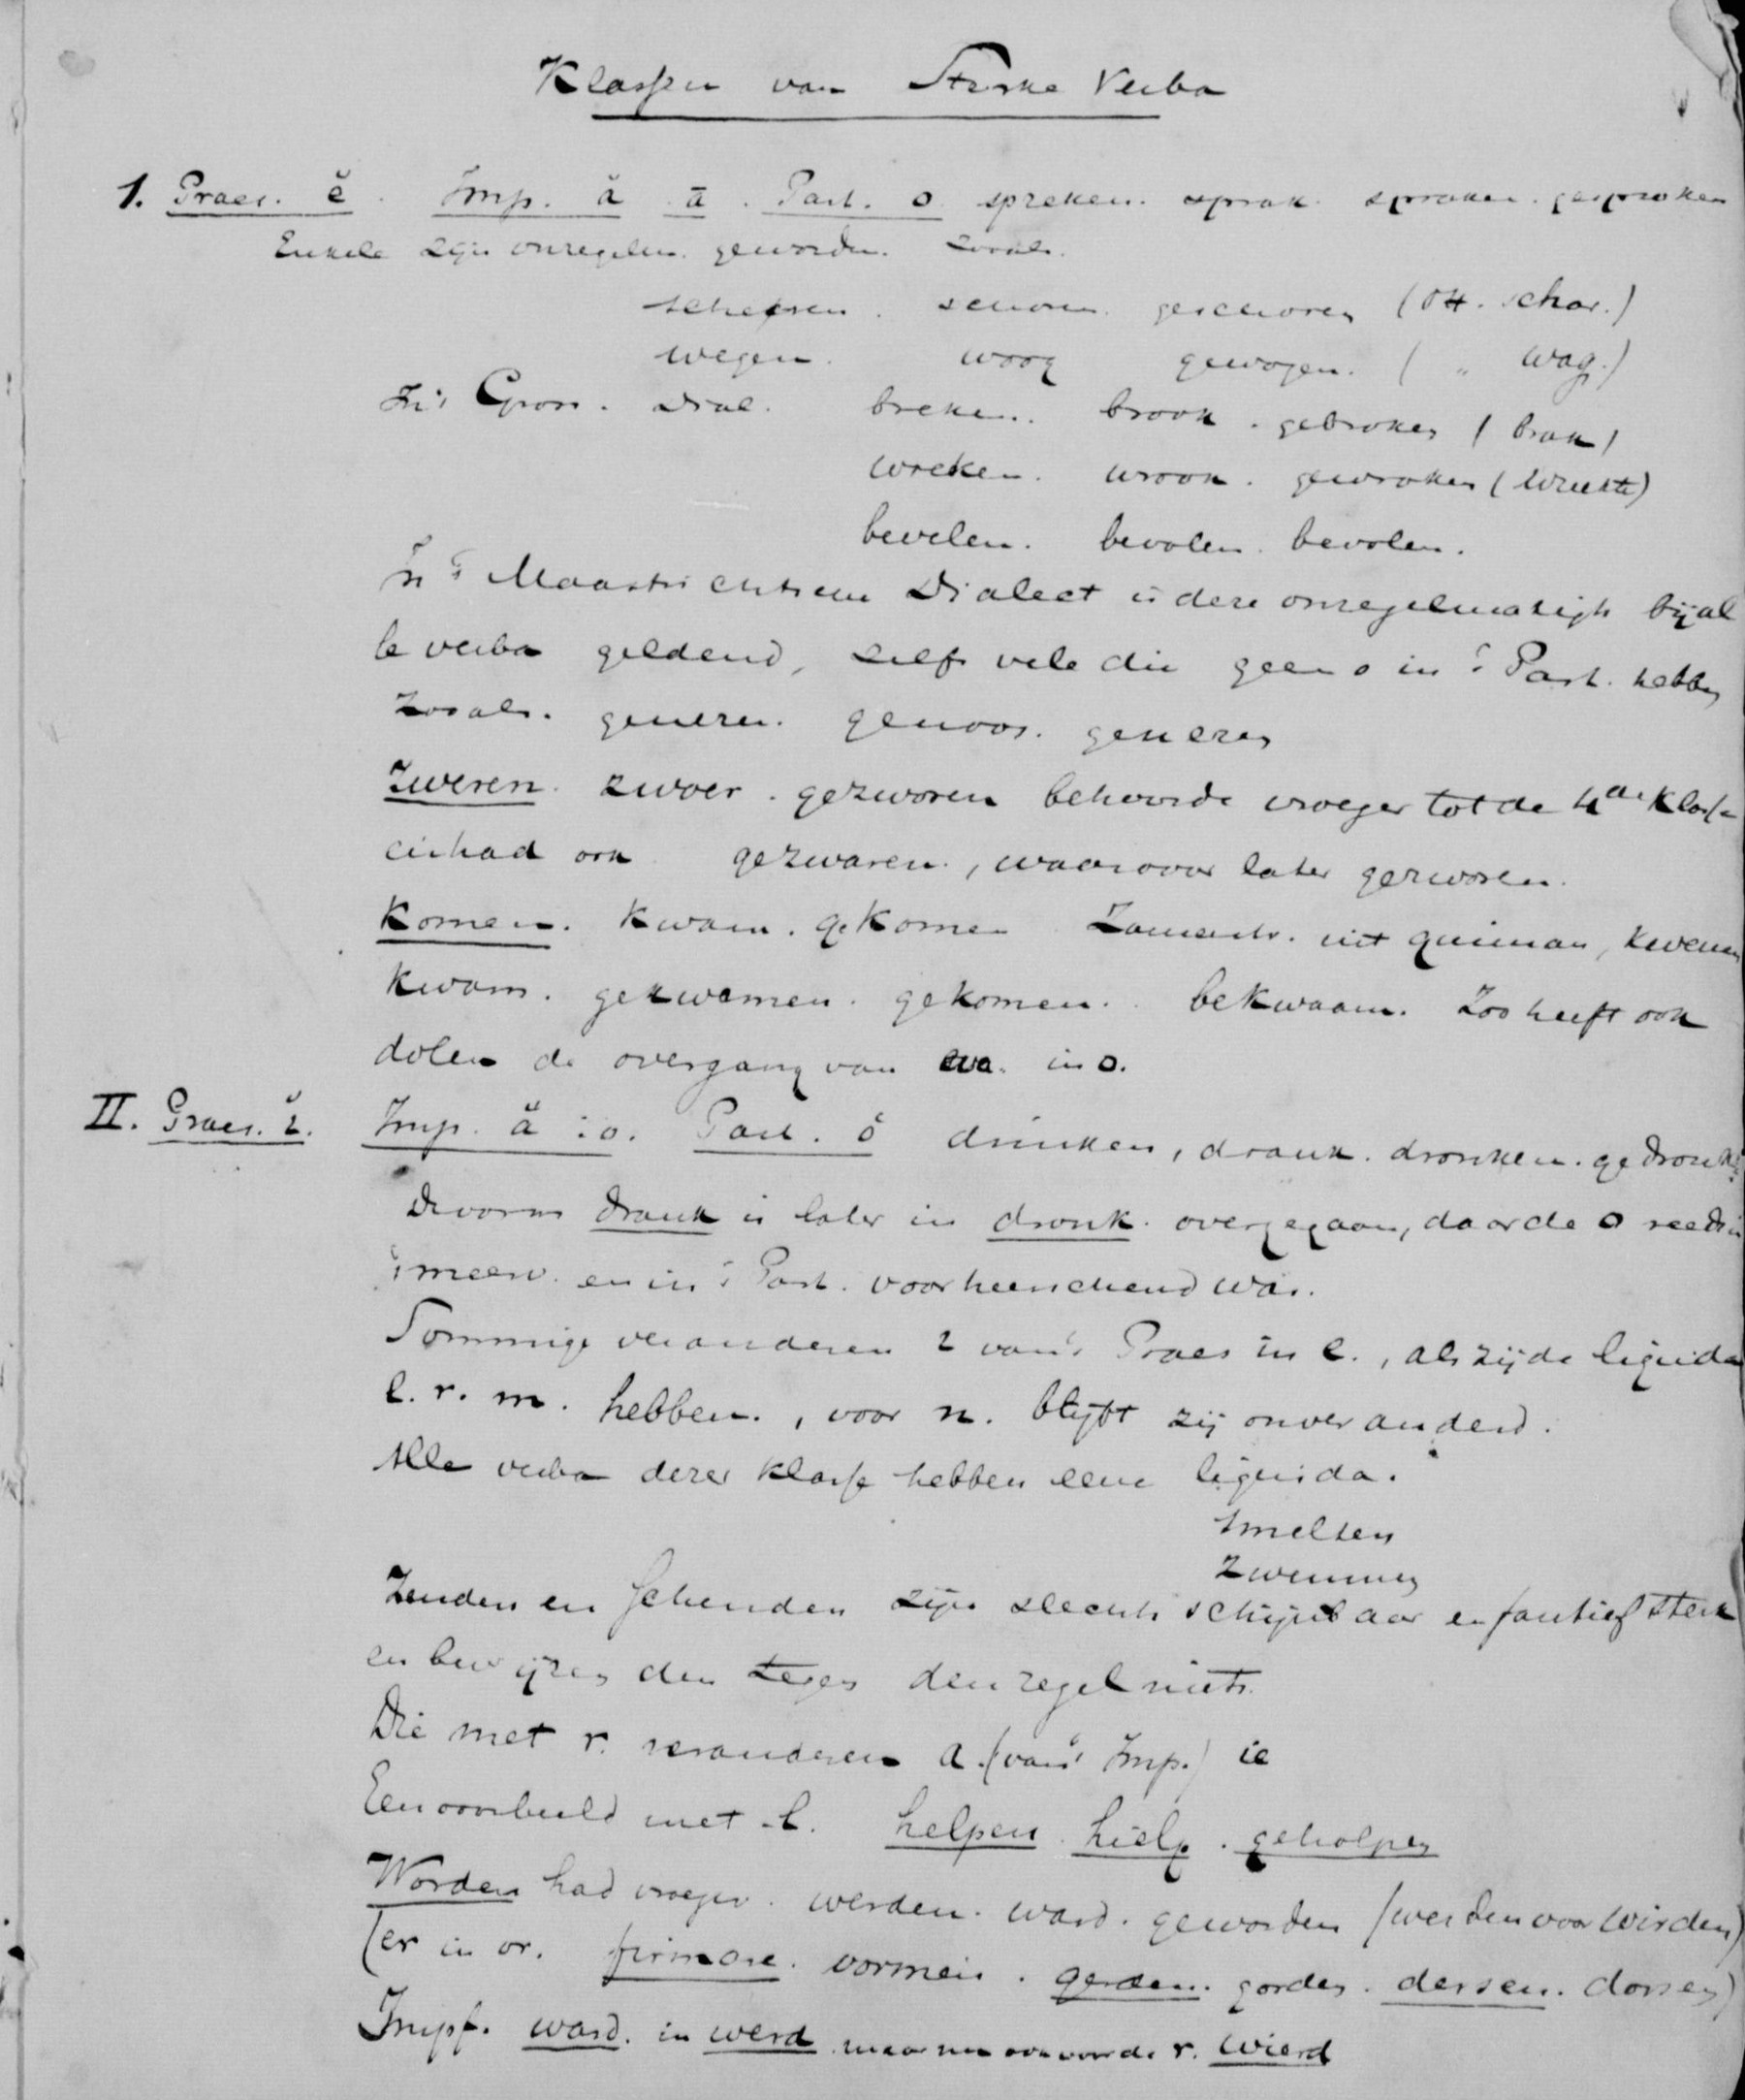 Klassen van Sterke Verba
1. Praes. ĕ. Imp. ă ā. Part. o spreken. sprak. spraken. gesproken
Enkele zijn onregelm. geworden. zooals.
scheren. schoor. geschoren (OH. schar.)
wegen. woog gewogen. ( „ wag.)
In 't Gron. Dial. breken. brook. gebroken (brak)
wreken. wrook. gewroken (wreekte)
bevelen. bevolen. bevolen.
In 't Maastrichtsche Dialect is deze onregelmatigh bij al
le verba geldend, zelfs vele die geen o in 't Part. hebben
zooals. genezen. genoos. genezen
Zweren. zwoer. gezworen behoorde vroeger tot de 4de Klasse
en had ook gezwaren., waarvoor later gezworen.
Komen. kwam. gekomen Zamentr. uit quiman, kwemen
kwam. gekwamen. gekomen. bekwaam. Zoo heeft ook
dolen de overgang van wa. in o.
II. Praes. ĭ. Imp. ă : o. Part. ŏ drinken, drank. dronken. gedronken
De vorm drank is later in dronk. overgegaan, daar de o reeds in
't meerv. en in 't Part. voorheerschend was.
Sommige veranderen i van 't Praes in e., als zij de liquida
l. r. m. hebben., voor n. blijft zij onveranderd.
Alle verba dezer klasse hebben eene liquida.
smelten
zwemmen
Zenden en schenden zijn slechts schijnbaar en foutief sterk
en bewijzen den tegen den regel niets.
Die met r. veranderen a. (van 't Imp.) ie
Een voorbeeld met -l. helpen. hielp. geholpen
Worden had vroeger. werden. ward. geworden (werden voor wirden)
(er in or. firmare. vormen. gerden. gorden. dersen. dorsen)
Impf. ward. in werd maar nu ook voor de r. wierd